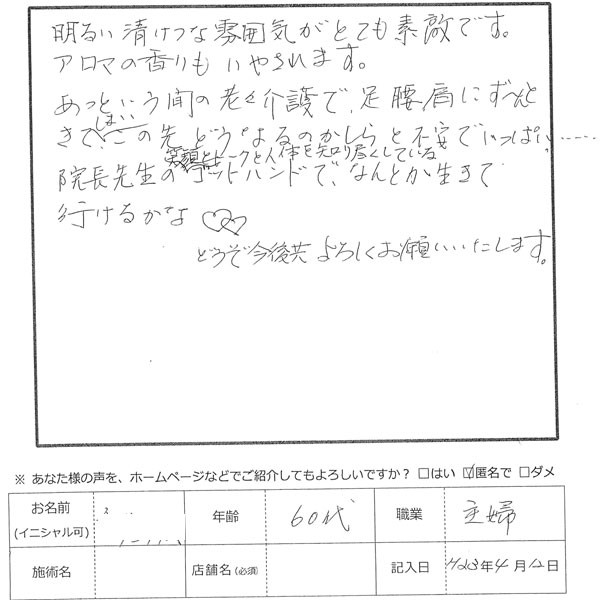 明るい清けつな雰囲気がとても素敵です。
アロマの香りもいやされます。
あっという間の老々介護で、足腰肩にずーんと
きてしまい、この先どうなるのかしらと不安でいっぱい……
笑顔とトークと人体を知り尽くしている
院長先生のゴットハンドで、なんとか生きて
行けるかな
どうぞ今後共よろしくお願いいたします。
※ あなた様の声を、ホームページなどでご紹介してもよろしいですか? □はい ☑匿名で □ダメ
お名前 (イニシャル可) 年齢 60代 職業 主婦
施術名 店舗名(必須) 記入日 H23年4月12日